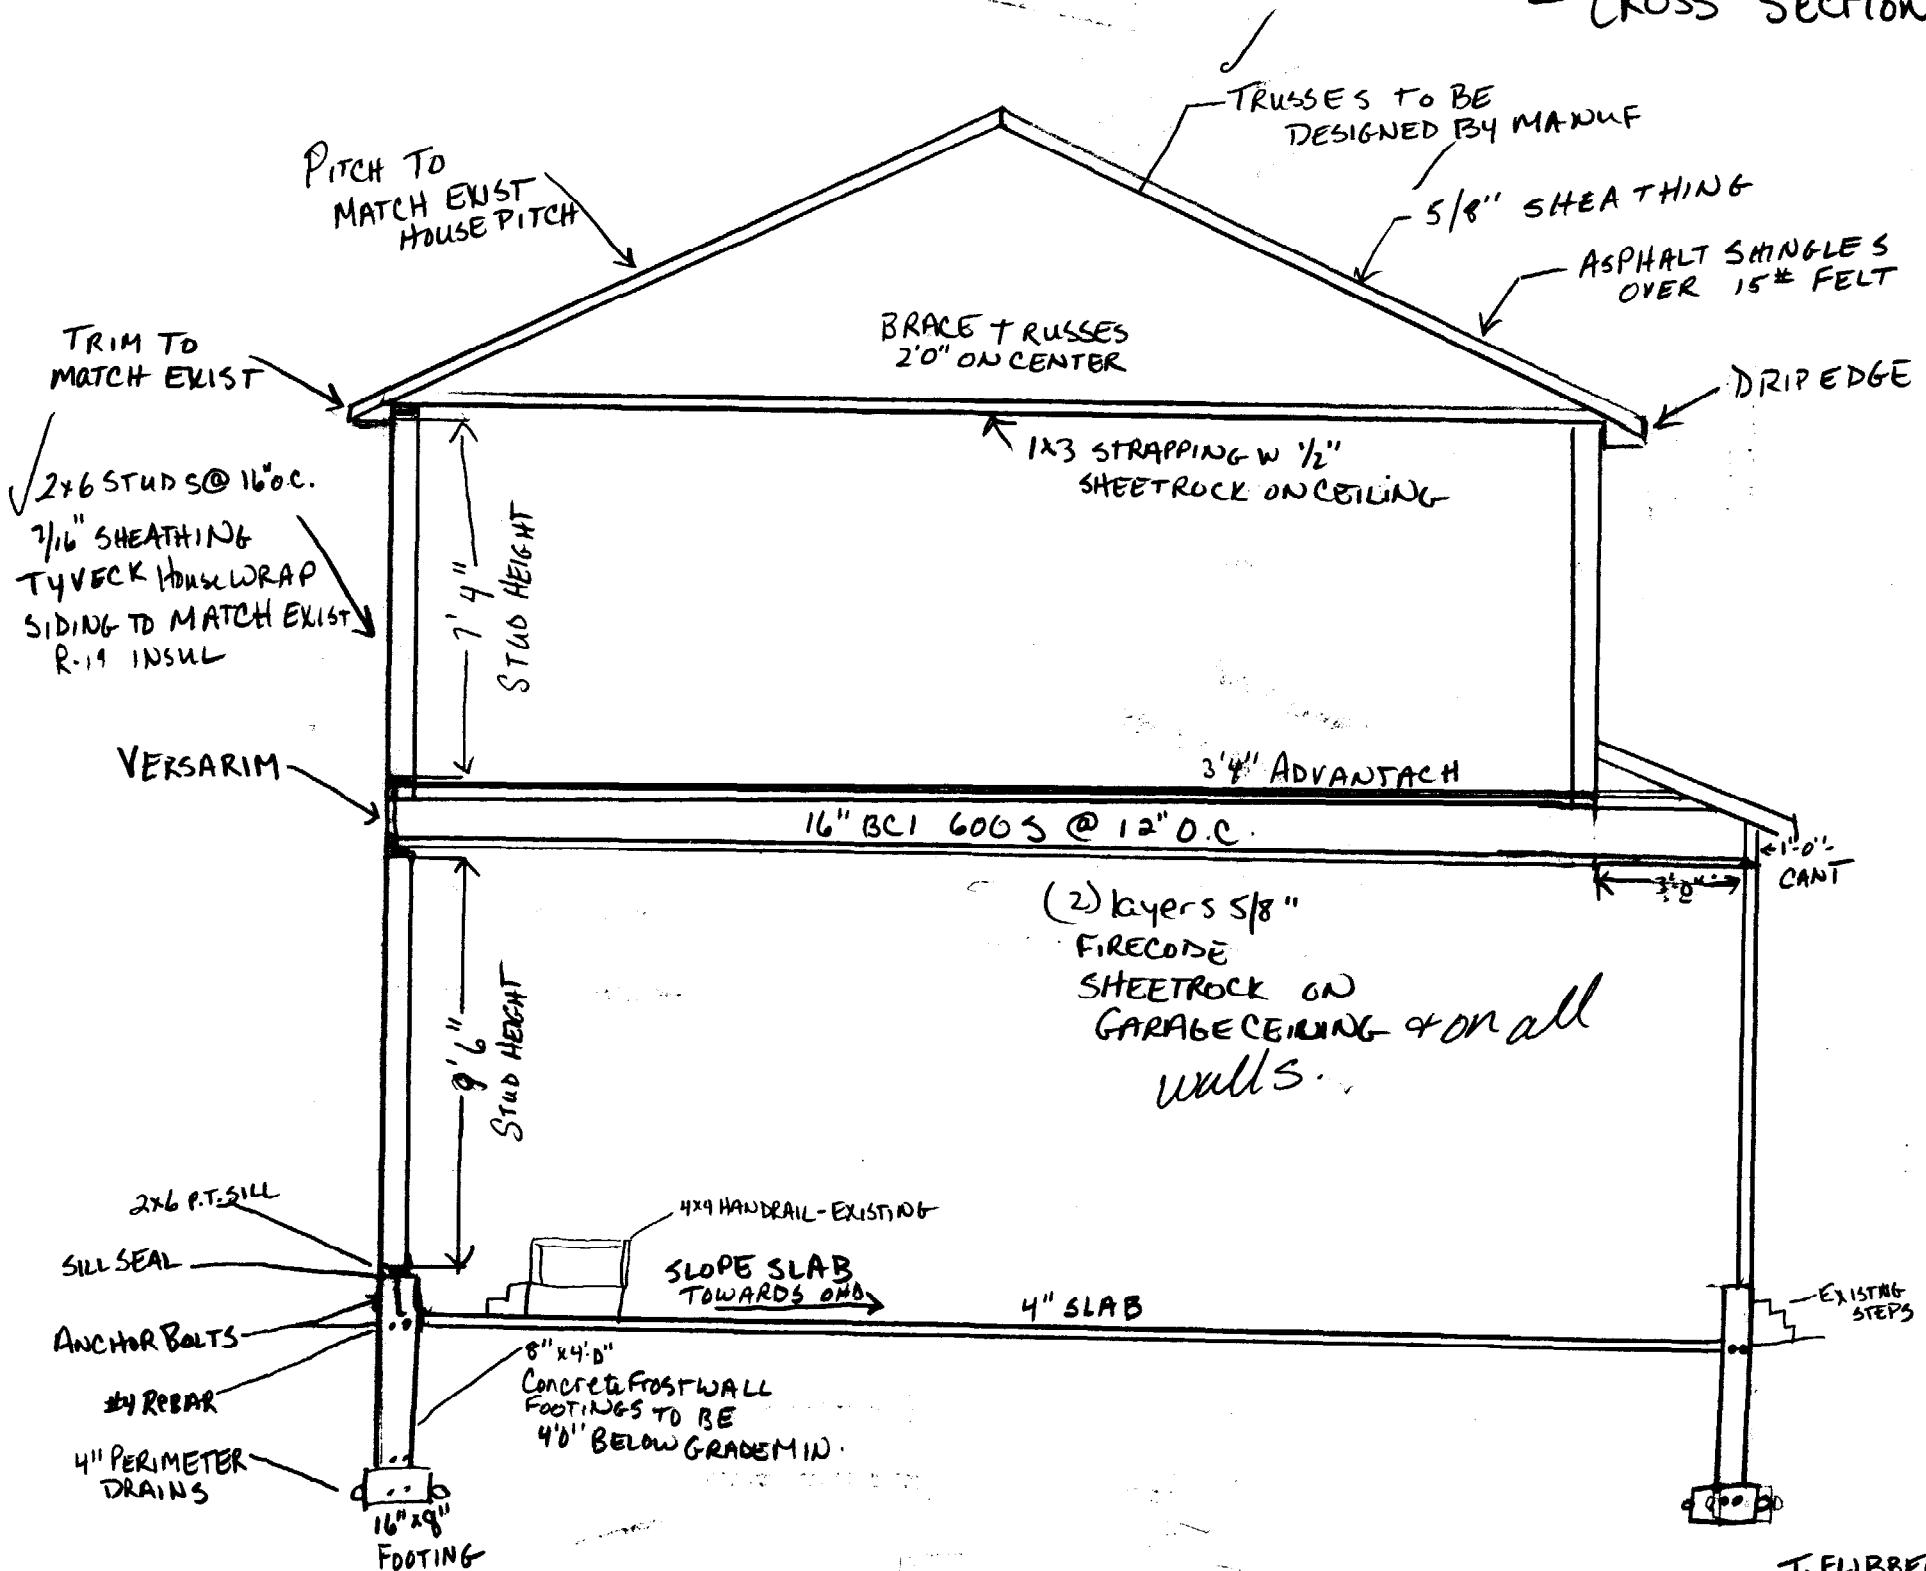 - CROSS SECTION
TRUSSES TO BE
DESIGNED BY MANUF
PITCH TO
MATCH EXIST
HOUSE PITCH
5/8" SHEATHING
ASPHALT SHINGLES
OVER 15# FELT
BRACE TRUSSES
2'0" ON CENTER
TRIM TO
MATCH EXIST
DRIP EDGE
1x3 STRAPPING W 1/2"
SHEETROCK ON CEILING
2x6 STUDS @ 16" O.C.
7/16" SHEATHING
TYVECK House WRAP
SIDING TO MATCH EXIST
R-19 INSUL
7'4"
STUD HEIGHT
VERSARIM
3'4" ADVANTACH
16" BCI 600 S @ 12" O.C.
1'-0"
CANT
3'-0"
(2) layers 5/8"
FIRECODE
SHEETROCK ON
GARAGE CEILING & on all
walls.
9'6"
STUD HEIGHT
2x6 P.T. SILL
4x4 HANDRAIL-EXISTING
SILL SEAL
SLOPE SLAB
TOWARDS OHD
4" SLAB
EXISTING
STEPS
ANCHOR BOLTS
#4 REBAR
8" x 4'-0"
Concrete FROSTWALL
FOOTINGS TO BE
4'0" BELOW GRADE MIN.
4" PERIMETER
DRAINS
16" x 8"
FOOTING